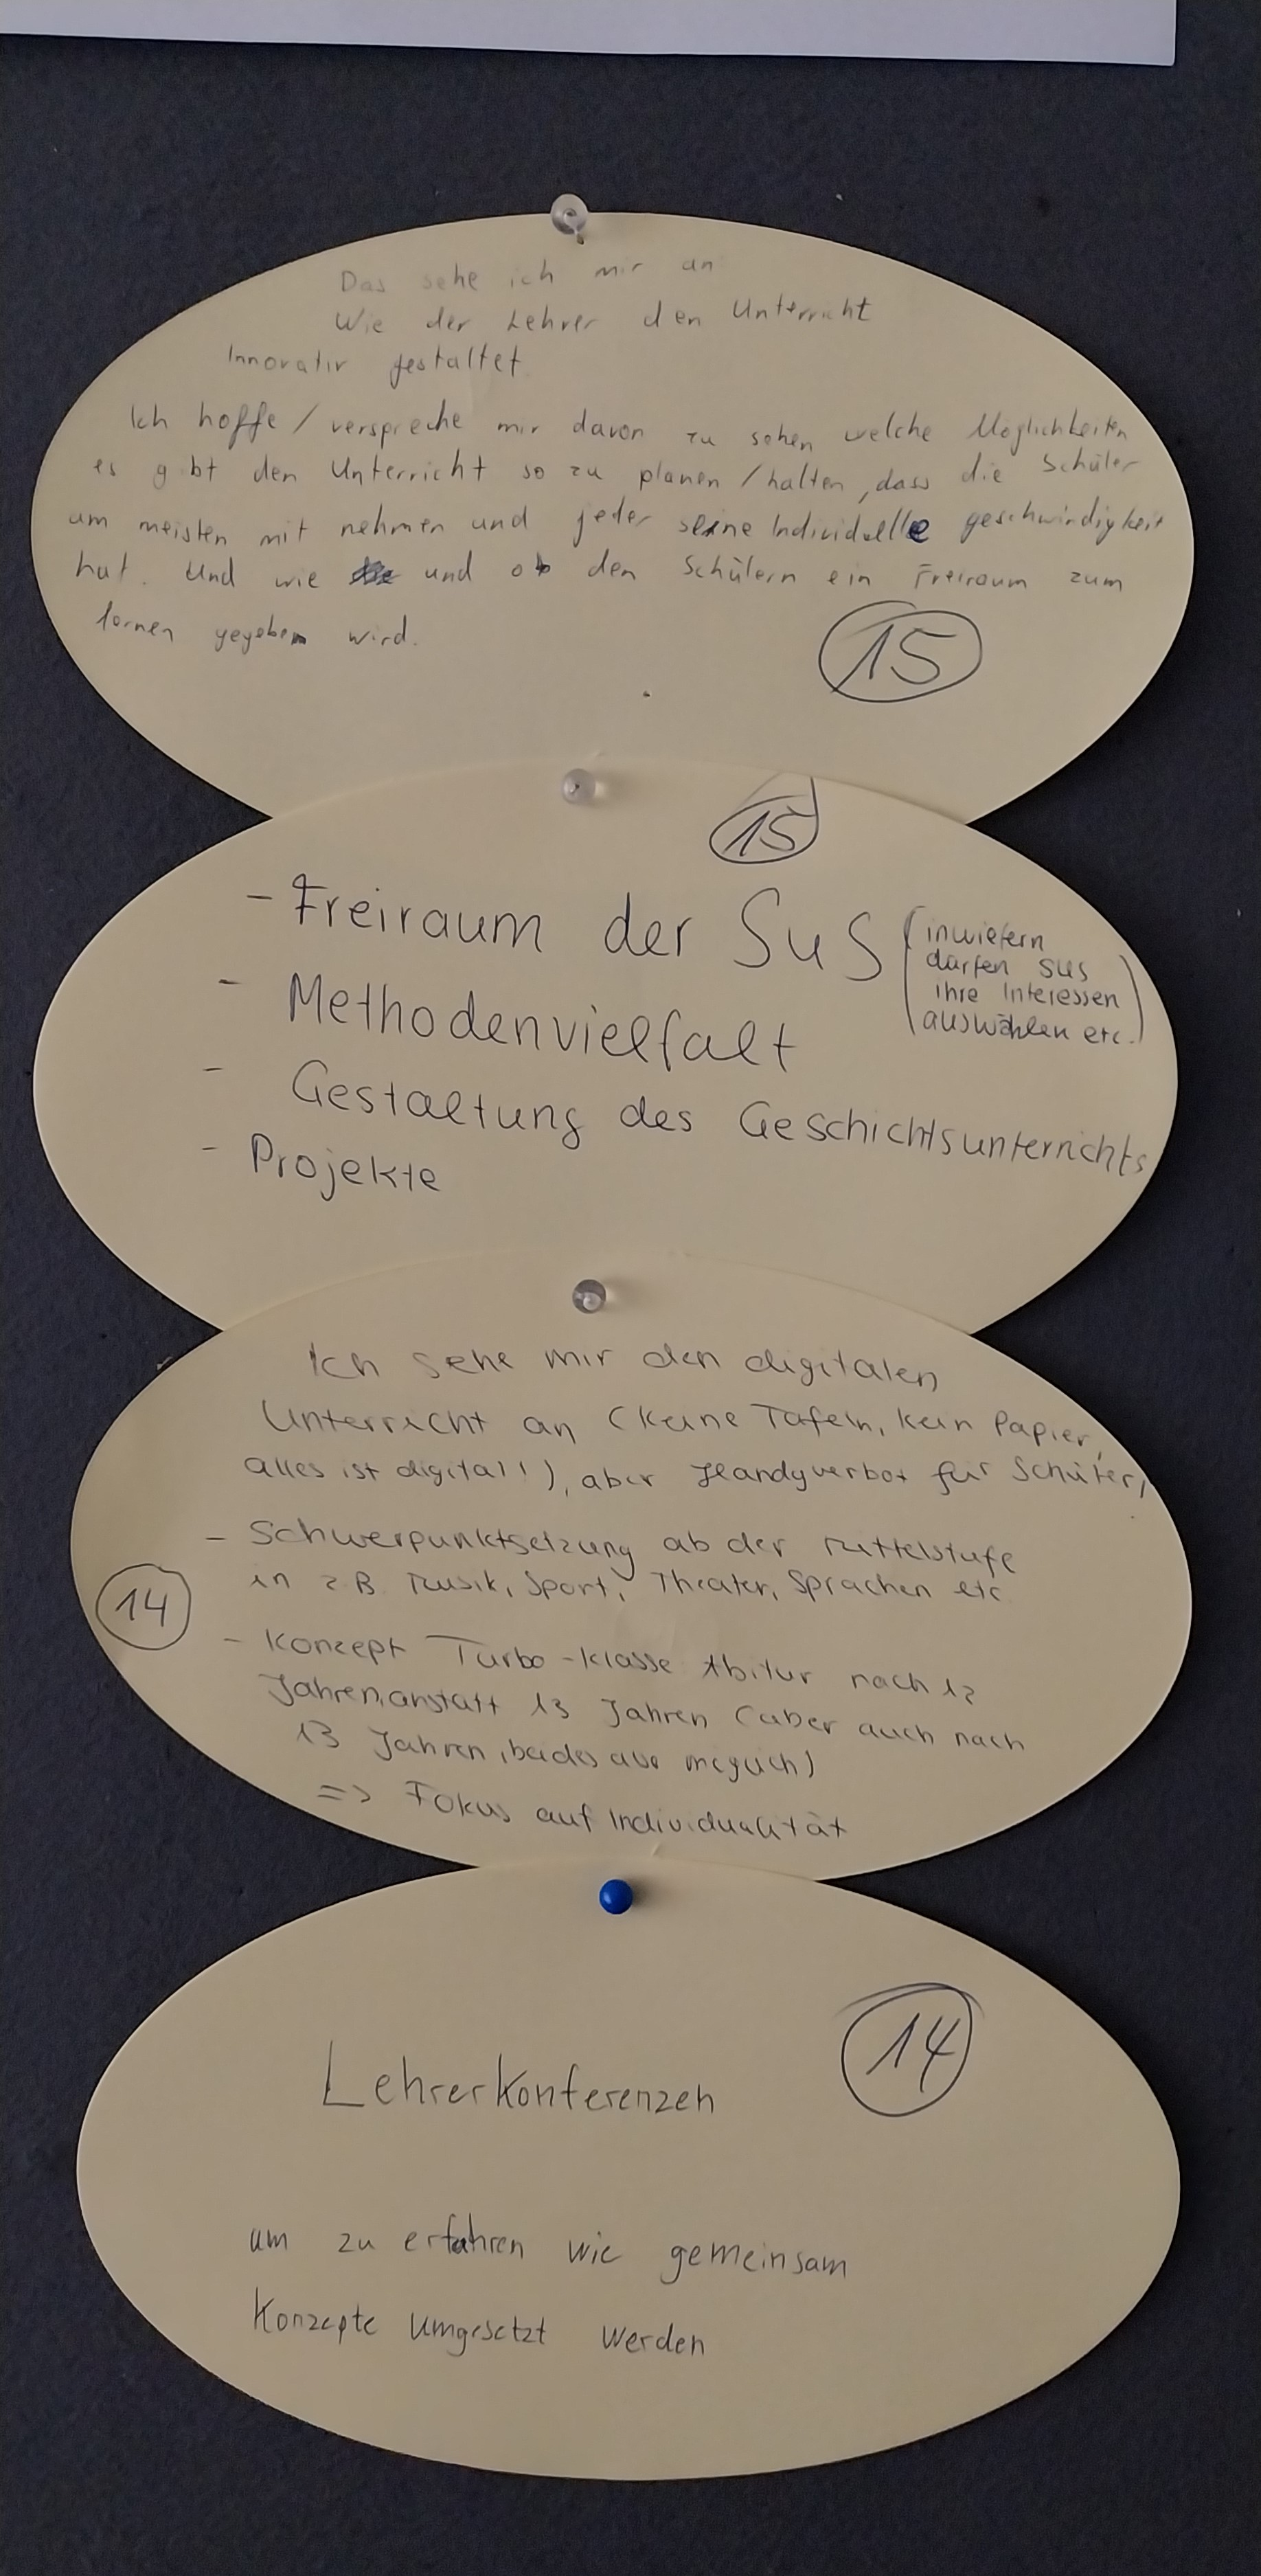 Das sehe ich mir an
Wie der Lehrer den Unterricht
Innovativ gestaltet
Ich hoffe / verspreche mir davon zu sehen welche Möglichkeiten
es gibt den Unterricht so zu planen / halten, dass die Schüler
am meisten mit nehmen und jeder seine Individuelle geschwindigkeit
hat. Und wie und ob den Schülern ein Freiraum zum
lernen gegeben wird.
15
15
- Freiraum der SuS (inwiefern
dürfen SuS
ihre Interessen
auswählen etc.)
- Methodenvielfalt
- Gestaltung des Geschichtsunterrichts
- Projekte
Ich sehe mir den digitalen
Unterricht an (keine Tafeln, kein Papier,
alles ist digital!), aber Handyverbot für Schüler,
- Schwerpunktsetzung ab der Mittelstufe
in z.B. Musik, Sport, Theater, Sprachen etc
14
- Konzept Turbo-klasse Abitur nach 12
Jahren, anstatt 13 Jahren (aber auch nach
13 Jahren, beides)
=> Fokus auf Individualität
14
Lehrerkonferenzen
um zu erfahren wie gemeinsam
Konzepte umgesetzt werden